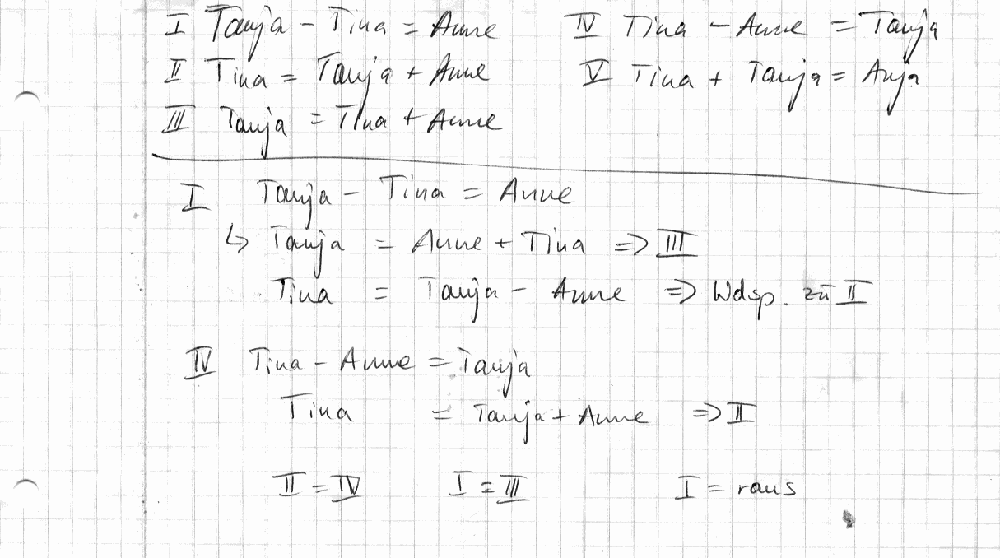 I Tanja - Tina = Anne
IV Tina - Anne = Tanja
II Tina = Tanja + Anne
V Tina + Tanja = Anja
III Tanja = Tina + Anne
I Tanja - Tina = Anne
↳ Tanja = Anne + Tina => III
Tina = Tanja - Anne => Wdsp. zu II
IV Tina - Anne = Tanja
Tina = Tanja + Anne => II
II = IV I = III I = raus